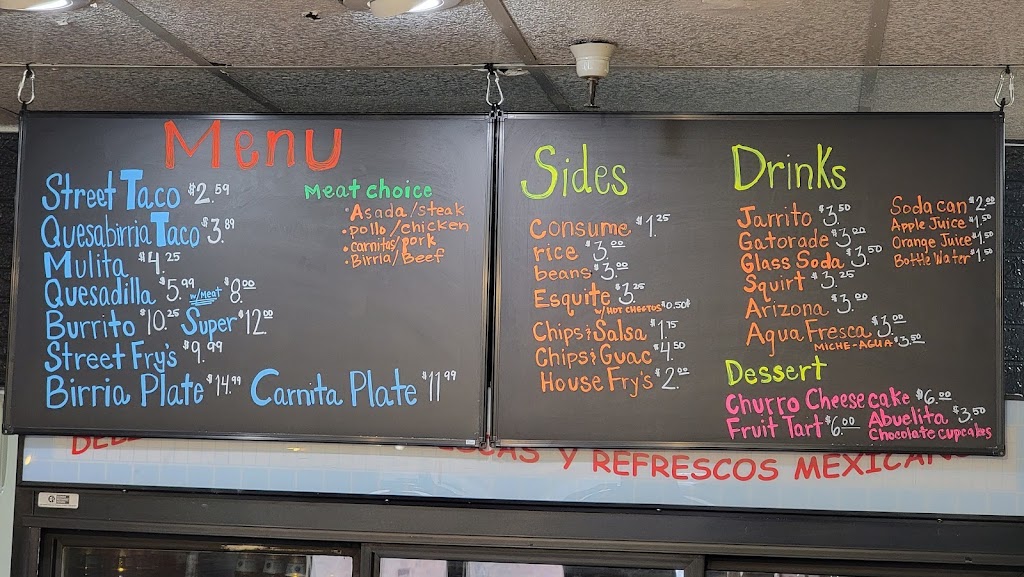 Menu
Street Taco $2.59
Quesabirria Taco $3.89
Mulita $4.25
Quesadilla $5.99 w/Meat $8.00
Burrito $10.25 Super $12.00
Street Fry's $9.99
Birria Plate $14.99 Carnita Plate $11.99
Meat choice
•Asada/steak
•pollo/chicken
•carnitas/pork
•Birria/Beef
Sides
Consume $1.25
rice $3.00
beans $3.00
Esquite $3.25
w/HOT CHEETOS $0.50¢
Chips & Salsa $1.75
Chips & Guac $4.50
House Fry's $2.00
Drinks
Jarrito $3.50
Gatorade $3.00
Glass Soda $3.50
Squirt $3.25
Arizona $3.00
Agua Fresca $3.00
MICHE-AGUA $3.50
Soda can $2.00
Apple Juice $1.50
Orange Juice $1.50
Bottle Water $1.50
Dessert
Churro Cheesecake $6.00
Fruit Tart $6.00
Abuelita $3.50
Chocolate cupcakes
Y REFRESCOS MEXICANO